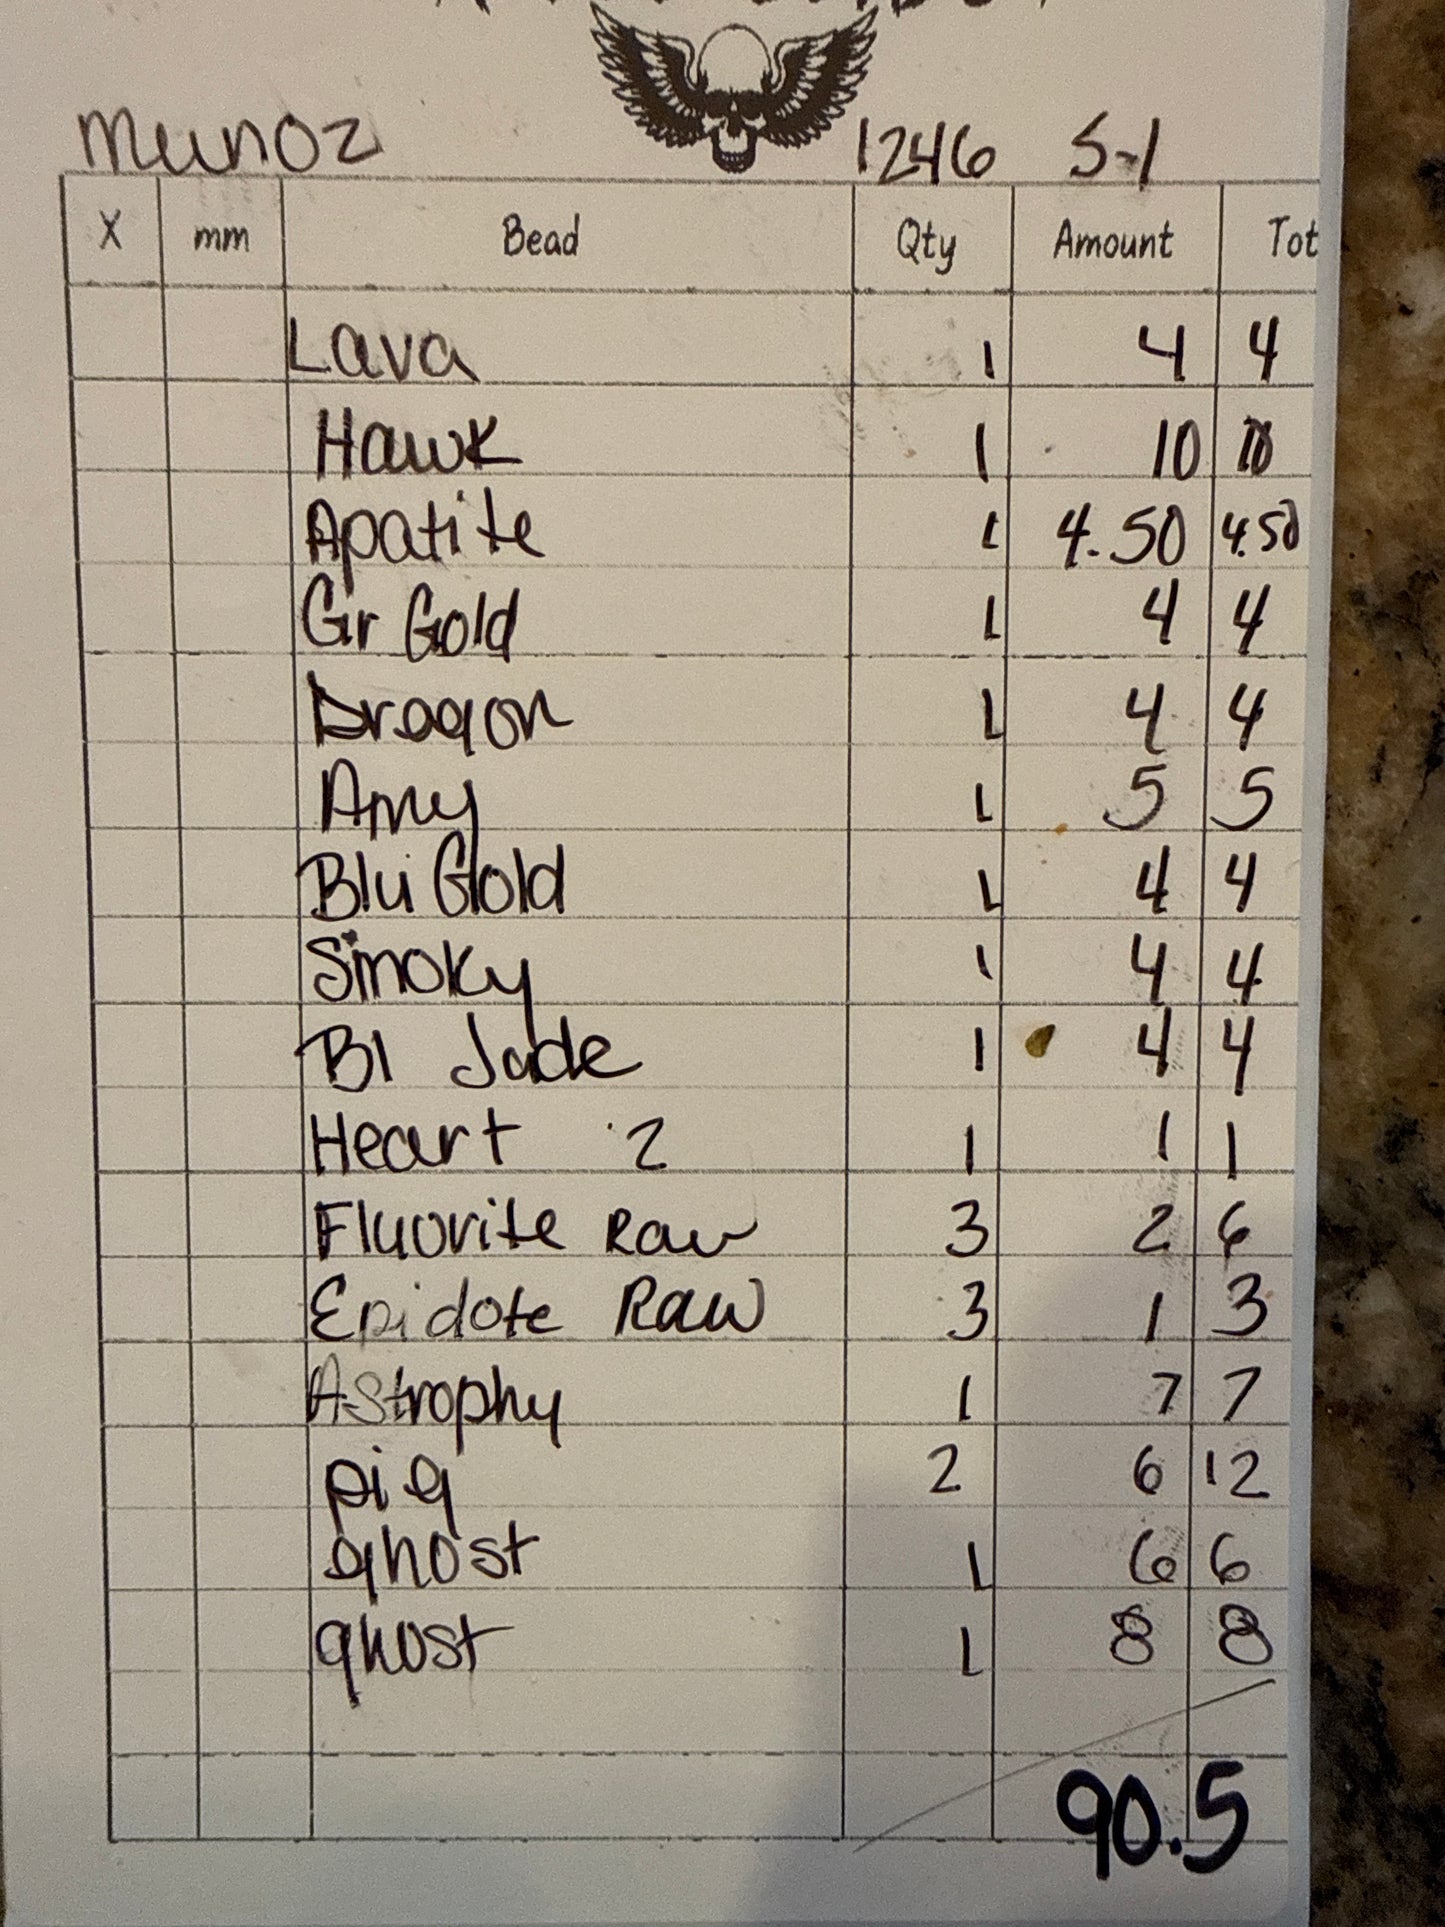 Munoz 1246 5-1
X mm Bead Qty Amount Tot
Lava 1 4 4
Hawk 1 10 10
Apatite 1 4.50 4.50
Gr Gold 1 4 4
Dragon 1 4 4
Amy 1 5 5
Blu Gold 1 4 4
Smoky 1 4 4
Bl Jade 1 4 4
Heart 2 1 1 1
Fluorite Raw 3 2 6
Epidote Raw 3 1 3
Astrophy 1 7 7
pig 2 6 12
ghost 1 6 6
ghost 1 8 8
90.5